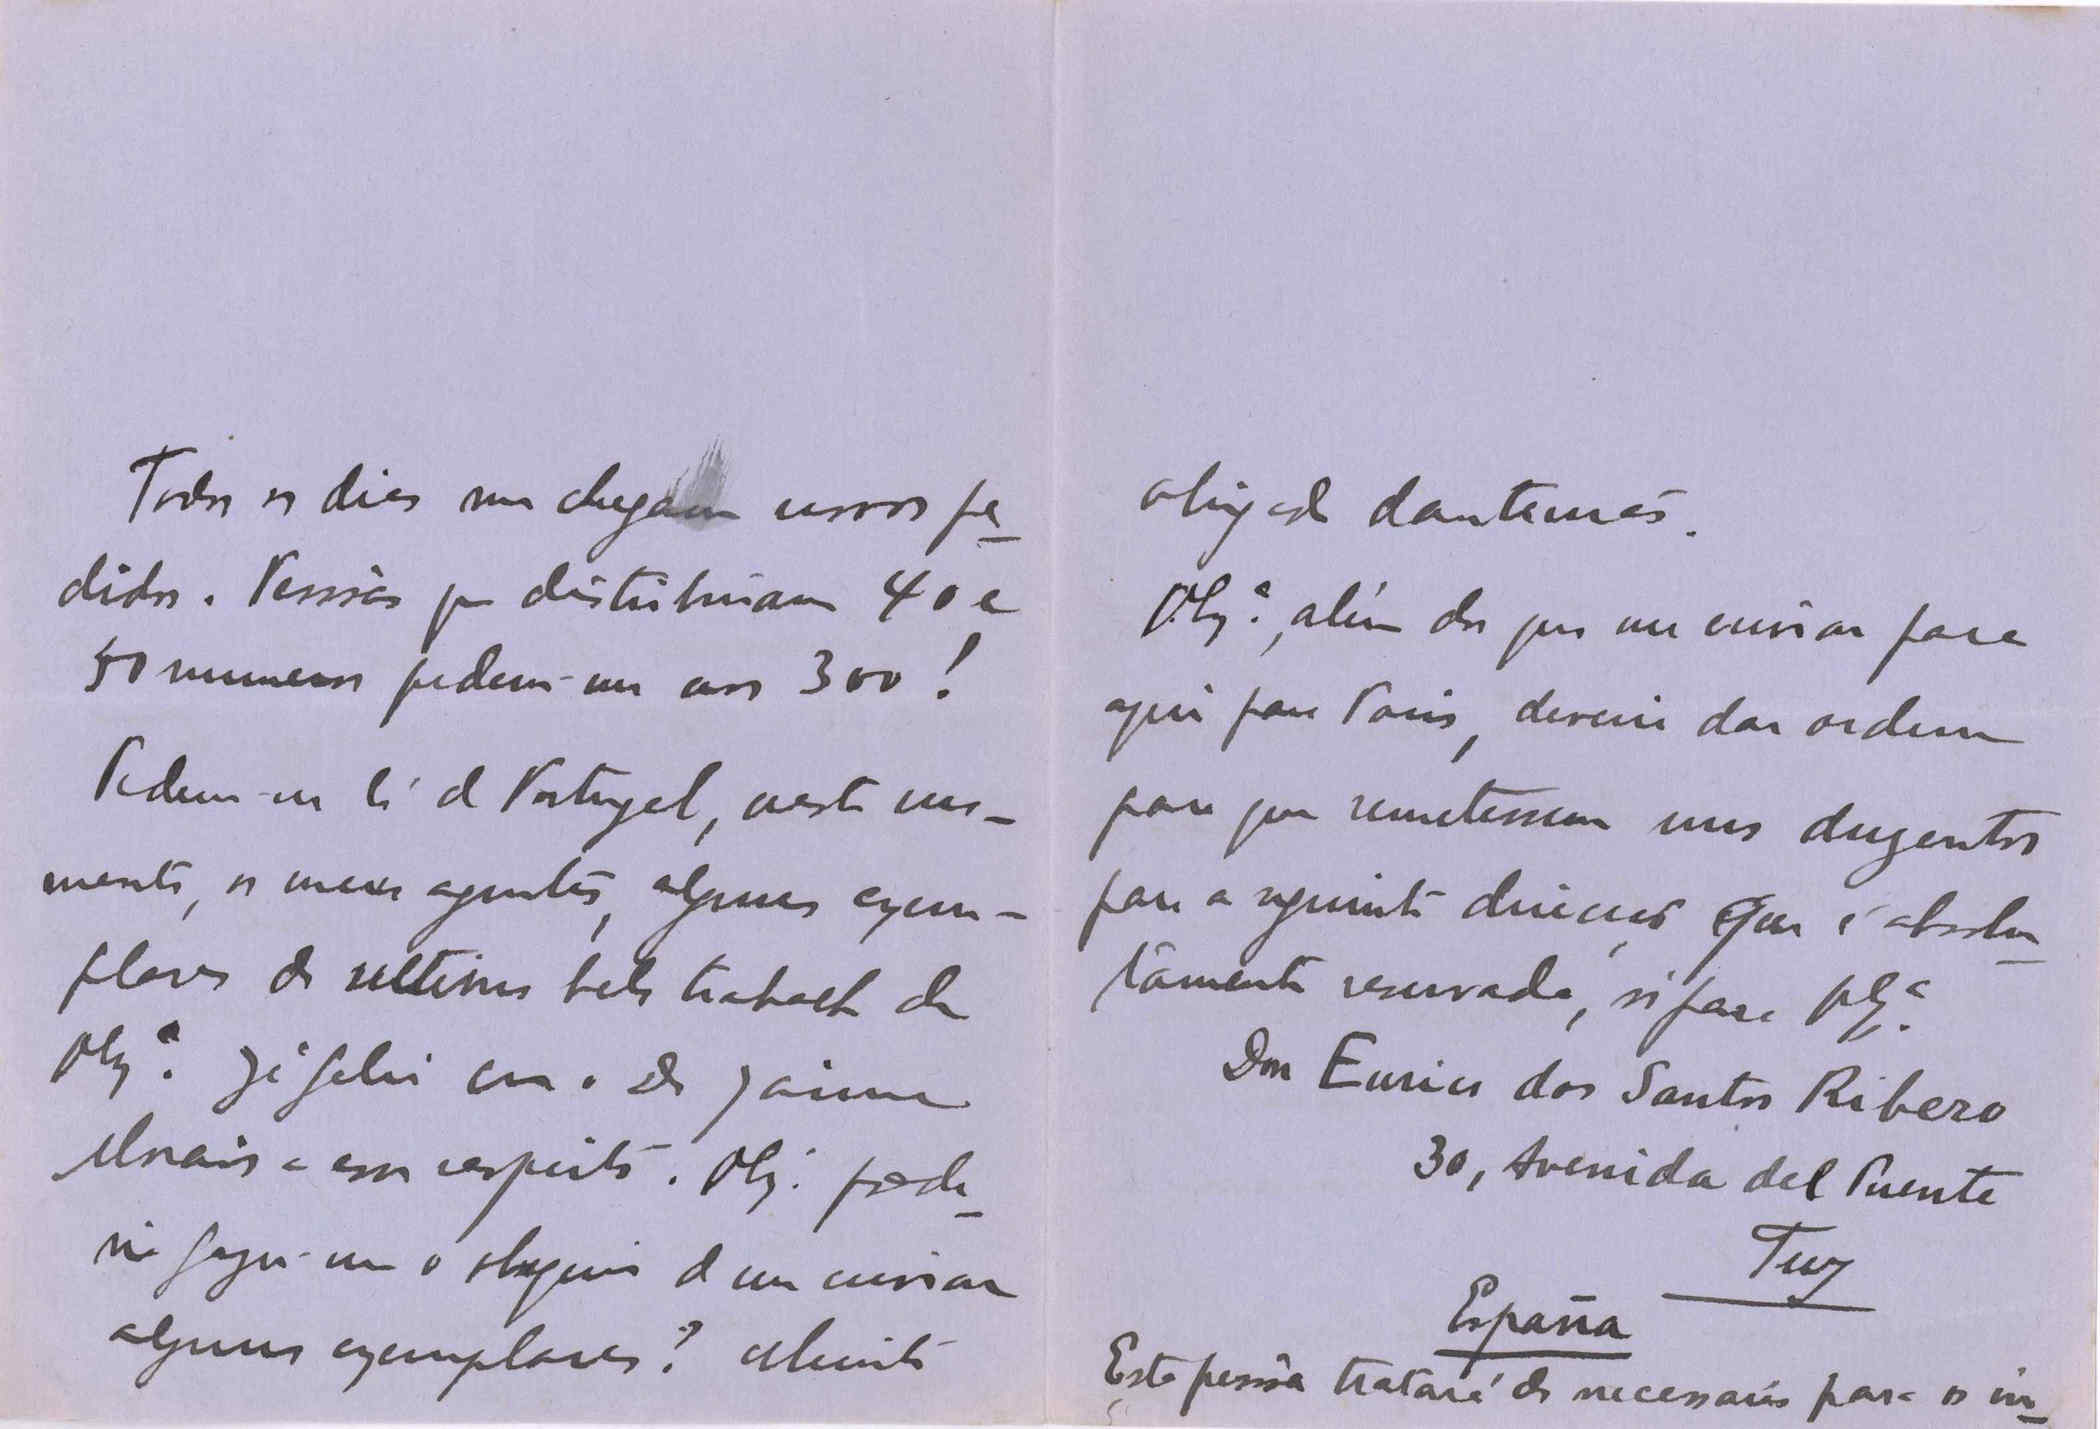 Todos os dias me chegam novos pe-
didos. Pessôas que distribuiam 40 e
50 numeros pedem-me aos 300!
Pedem-me lá de Portugal, neste mo-
mento, os meus agentes, alguns exem-
plares do ultimo belo trabalho de
V. Ex.ª. Já falei com o Dr Jaime
Morais a esse respeito. V. Ex.ª pode-
ria fazer-me o obsequio de me enviar
alguns exemplares? Muito
obrigado dantemão.
V. Ex.ª, além dos que me enviar para
aqui para Paris, deveria dar ordem
para que remetessem uns duzentos
para a seguinte direcção, que é absolu-
tamente reservada, só para V. Ex.ª
Don Eurico dos Santos Ribero
30, Avenida del Puente
Tuy
España
Esta pessôa tratará do necessario para os in-